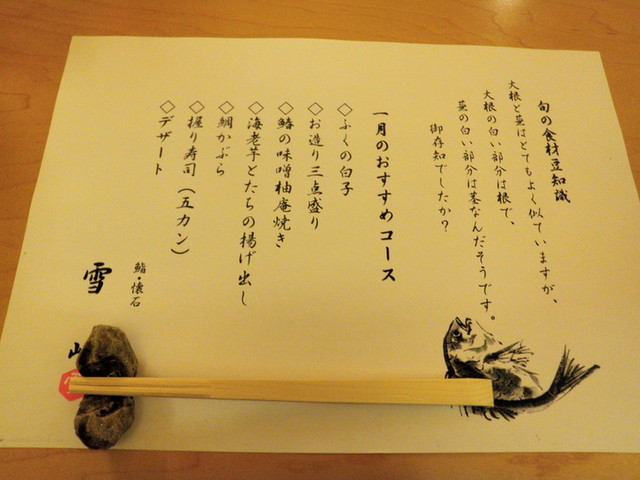 旬の食材豆知識
大根と蕪はとてもよく似ていますが、
大根の白い部分は根で、
蕪の白い部分は茎なんだそうです。
御存知でしたか？
一月のおすすめコース
◇ふくの白子
◇お造り三点盛り
◇鰆の味噌柚庵焼き
◇海老芋とたちの揚げ出し
◇鯛かぶら
◇握り寿司（五カン）
◇デザート
鮨・懐石
雪